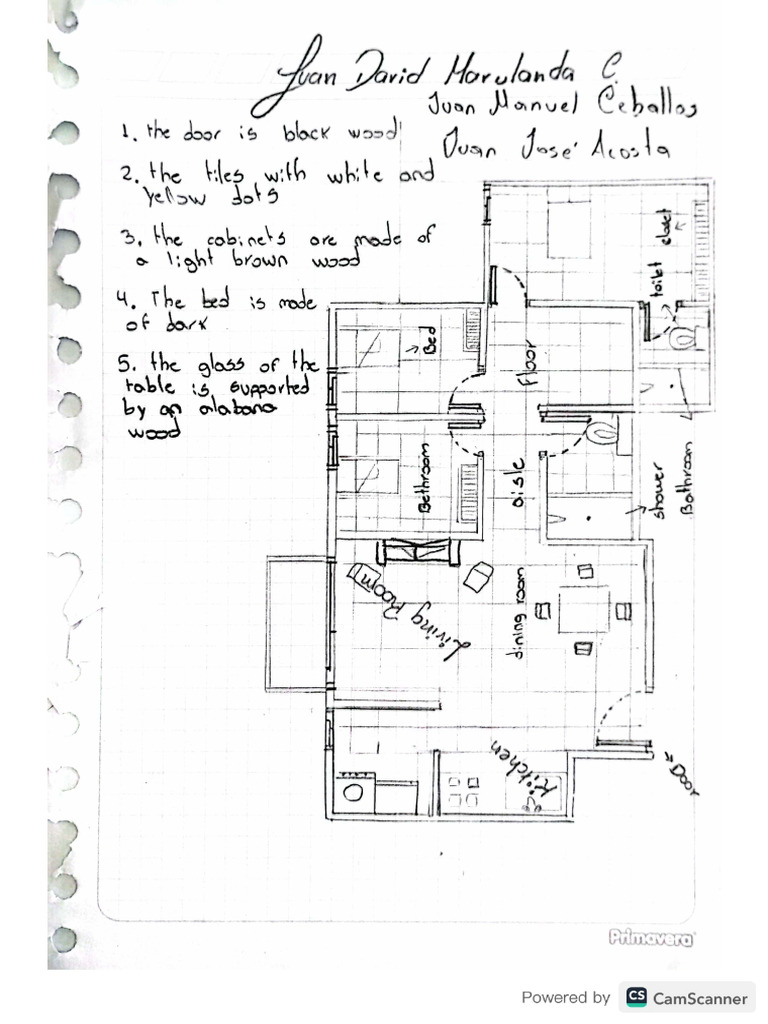 Juan David Marulanda C.
Juan Manuel Ceballos
Juan José Acosta
1. the door is black wood
2. the tiles with white and
yellow dots
3. the cabinets are made of
a light brown wood
4. The bed is made
of dark
5. the glass of the
table is supported
by an alabana
wood
toilet closet
Bed
floor
Bethroom
aisle
shower
Bathroom
Living Room
dining room
Kitchen
Door
Primavera
Powered by CS CamScanner